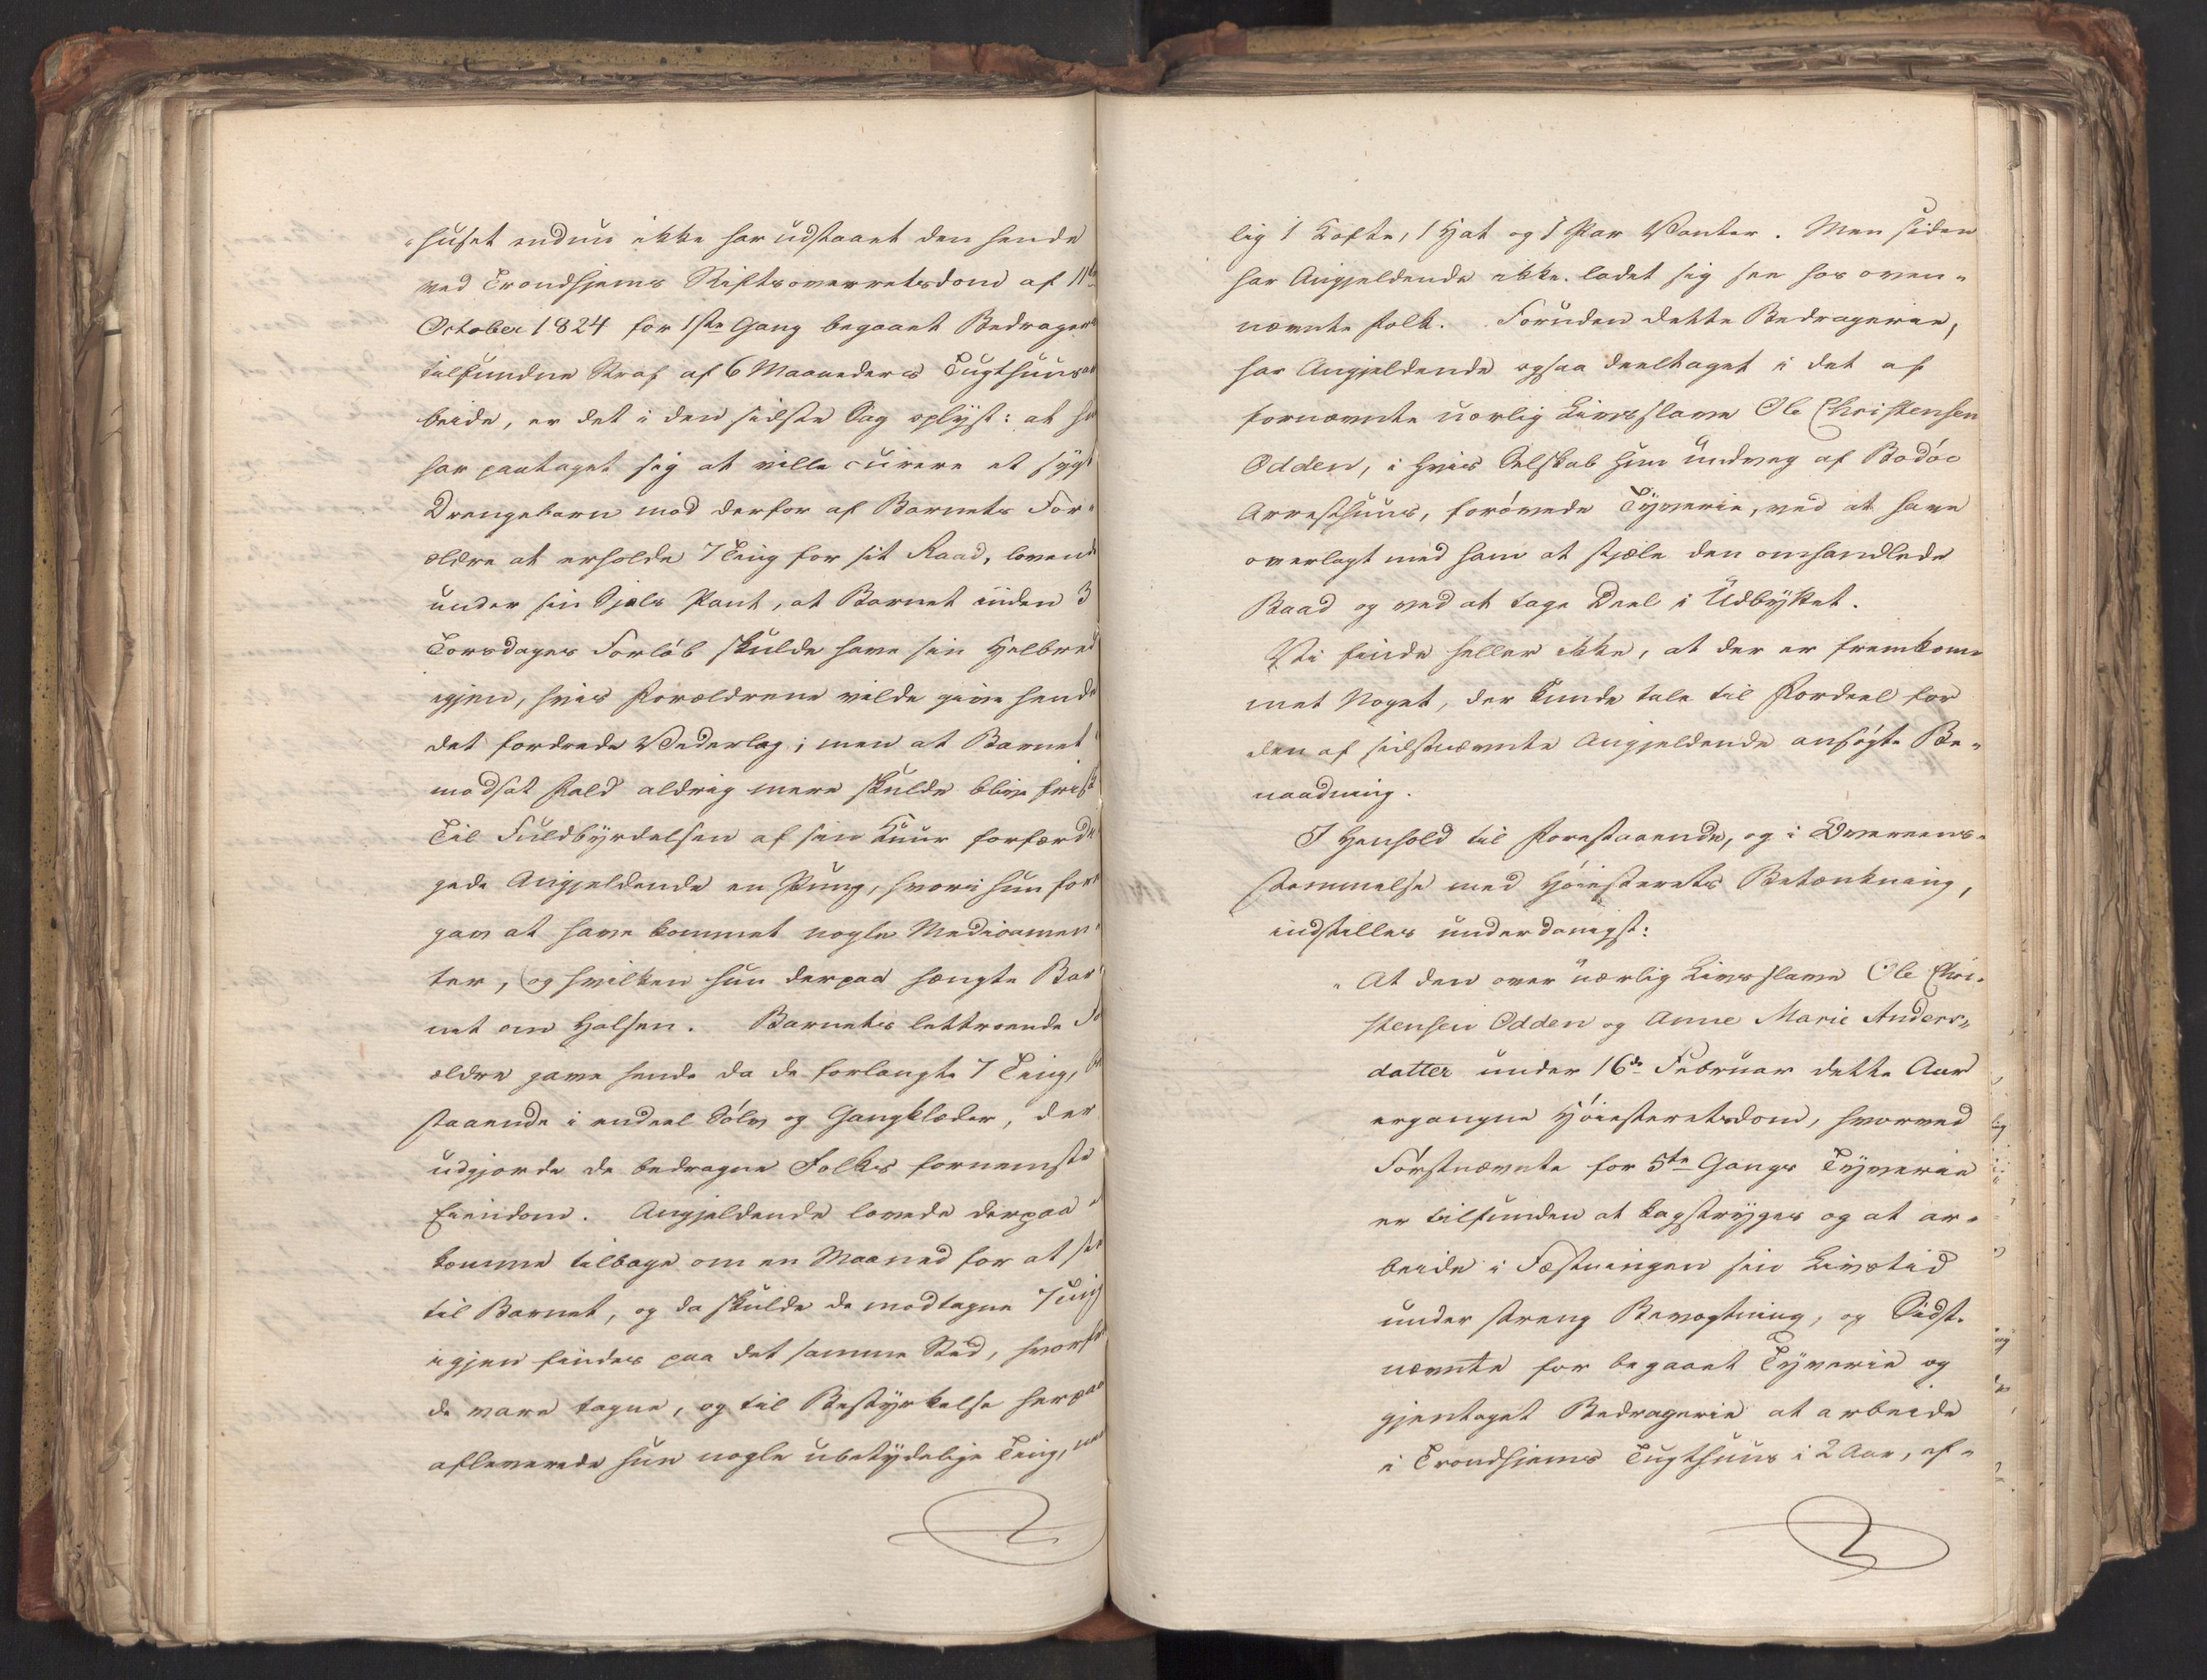 huset endnu ikke har udstaaet den hende
ved Trondhjems Stiftsoverretsdom af 11te
October 1824 for 1ste Gang begaaet Bedragerie
tilfundne Straf af 6 Maaneders Tugthuusar
beide, er det i den sidste Sag oplyst: at hun
har paataget sig at ville curere et sygt
Drengebarn mod derfor af Barnets For-
ældre at erholde 7 Ting for sit Raad, lovende
under sin Sjæls Pant, at Barnet inden 3
Torsdages Forløb skulde have sin Helbred
igjen, hvis Forældrene vilde give hende
det fordrede Vederlag; men at Barnet
modsat Fald aldrig mere skulde blive frisk
Til Fuldbyrdelsen af sin Kuur forfærdi
gede Angjeldende en Pung, hvori hun fore
gav at have kommet nogle Medicamen-
ter, og hvilken hun derpaa hængte Bar
net om Halsen. Barnets lettroende For
ældre gave hende da de forlangte 7 Ting, be
staaende i endeel Sølv og Gangklæder, der
udgjorde de bedragne Folks fornemste
Eiendom. Angjeldende lovede derpaa at
komme tilbage om en Maaned for at see
til Barnet, og da skulde de modtagne 7 Ting
igjen findes paa det samme Sted, hvorfra
de vare tagne, og til Bestyrkelse herpaa
afleverede hun nogle ubetydelige Ting, nem
lig 1 Kofte, 1 Hat og 1 Par Vanter. Men siden
har Angjeldende ikke ladet sig see hos oven-
nævnte Folk. Foruden dette Bedragerie,
har Angjeldende ogsaa deeltaget i det af
fornævnte uærlig Livsslave Ole Christensen
Odden, i hvis Selskab hun undveg af Bodøe
Arresthuus, forøvede Tyverie, ved at have
overlagt med ham at stjæle den omhandlede
Baad og ved at tage Deel i Udbyttet.
Vi finde heller ikke, at der er fremkom-
met Noget, der kunde tale til Fordeel for
den af sidstnævnte Angjeldende ansøgte Be-
naadning.
I Henhold til Forestaaende, og i Overeens-
stemmelse med Høiesterets Betænkning,
indstilles underdanigst:
At den over uærlig Livsslave Ole Chri-
stensen Odden og Anne Marie Anders-
datter under 16de Februar dette Aar
ergangne Høiesteretsdom, hvorved
Førstnævnte for 5te Gangs Tyverie
er tilfunden at kagstryges og at ar-
beide i Fæstningen sin Livstid
under streng Bevogtning, og Sidst-
nævnte for begaaet Tyverie og
gjentaget Bedragerie at arbeide
i Trondhjems Tugthuus i 2 Aar, ef-